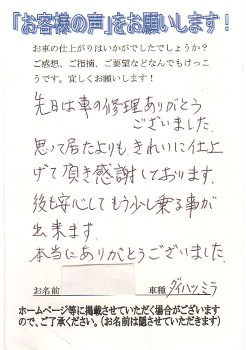 「お客様の声」をお願いします！
お車の仕上がりはいかがでしたでしょうか？
ご感想、ご指摘、ご要望などなんでもけっこ
うです。宜しくお願いします！
先日は車の修理ありがとう
ございました。
思って居たよりも、きれいに仕上
げて頂き感謝しております。
後も安心してもう少し乗る事が
出来ます。
本当にありがとうございました。
お名前 車種 ダイハツミラ
ホームページ等に掲載させていただく場合がございます
ので、ご了承ください。（お名前は隠させていただきます）